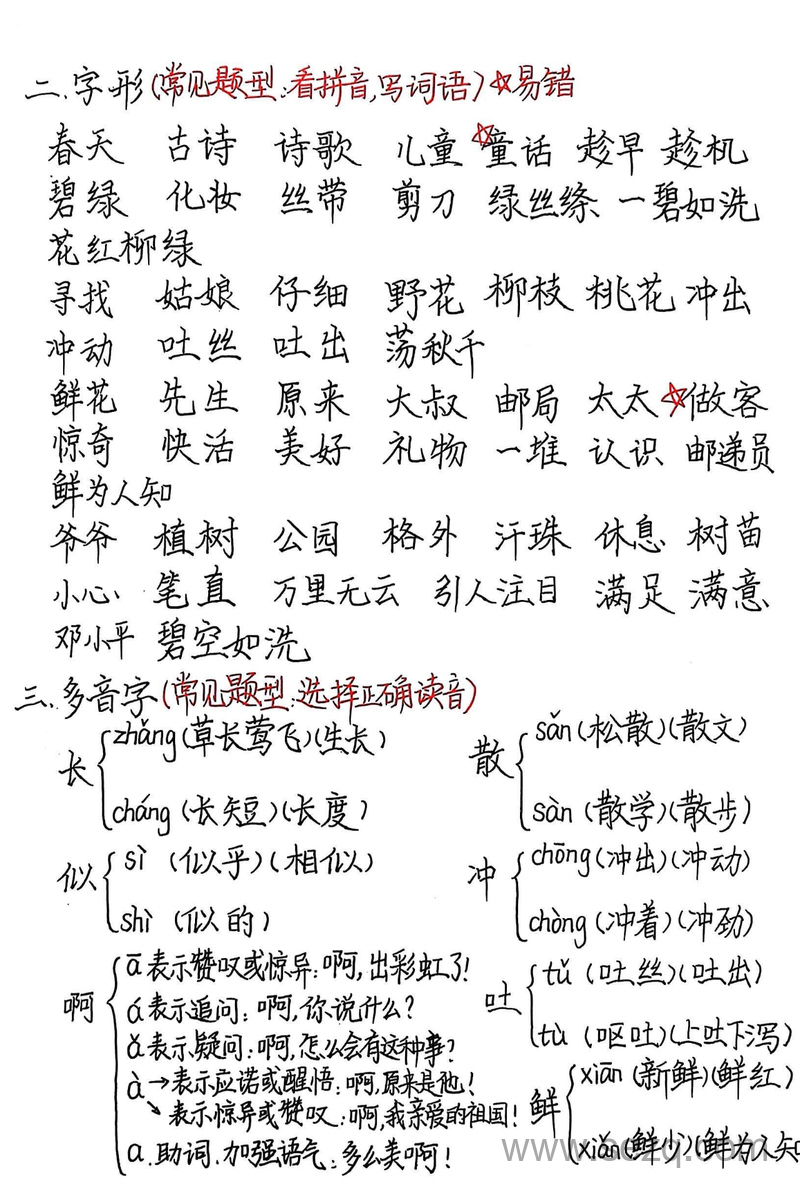 二.字形(常见题型:看拼音,写词语)☆易错
春天 古诗 诗歌 儿童 ☆童话 趁早 趁机
碧绿 化妆 丝带 剪刀 绿丝绦 一碧如洗
花红柳绿
寻找 姑娘 仔细 野花 柳枝 桃花 冲出
冲动 吐丝 吐出 荡秋千
鲜花 先生 原来 大叔 邮局 太太 ☆做客
惊奇 快活 美好 礼物 一堆 认识 邮递员
鲜为人知
爷爷 植树 公园 格外 汗珠 休息 树苗
小心 笔直 万里无云 引人注目 满足 满意
邓小平 碧空如洗
三.多音字(常见题型:选择正确读音)
长
zhǎng(草长莺飞)(生长)
cháng(长短)(长度)
散
sǎn(松散)(散文)
sàn(散学)(散步)
似
sì(似乎)(相似)
shì(似的)
冲
chōng(冲出)(冲动)
chòng(冲着)(冲劲)
啊
ā表示赞叹或惊异:啊,出彩虹了!
á表示追问:啊,你说什么?
ǎ表示疑问:啊,怎么会有这种事?
à→表示应诺或醒悟:啊,原来是他!
↘表示惊异或赞叹:啊,我亲爱的祖国!
a.助词.加强语气:多么美啊!
吐
tǔ(吐丝)(吐出)
tù(呕吐)(上吐下泻)
鲜
xiān(新鲜)(鲜红)
xiǎn(鲜少)(鲜为人知